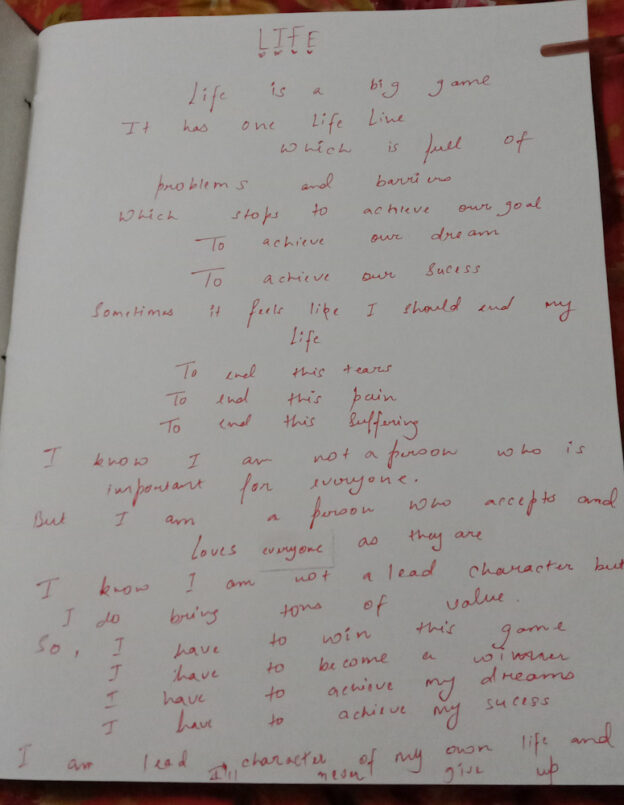 LIFE
Life is a big game
It has one Life Line
which is full of
problems and barriers
which stops to achieve our goal
To achieve our dream
To achieve our sucess
Sometimes it feels like I should end my
Life
To end this tears
To end this pain
To end this suffering
I know I am not a person who is
important for everyone.
But I am a person who accepts and
loves everyone as they are
I know I am not a lead character but
I do bring tons of value.
So, I have to win this game
I have to become a winner
I have to achieve my dreams
I have to achieve my sucess
I am lead character of my own life and
I'll never give up